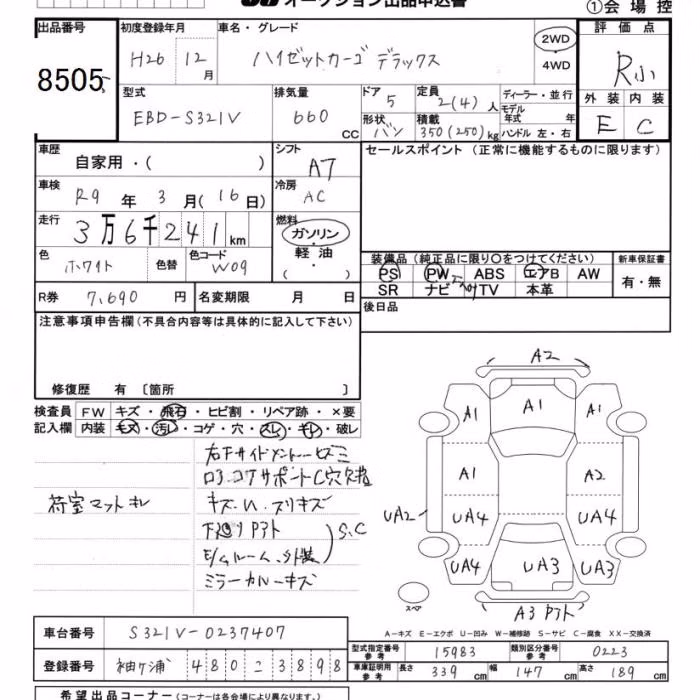 オークション出品申込書
①会場控
出品番号 初度登録年月 車名・グレード 評価点
8505 H26 12月 ハイゼットカーゴ デラックス 2WD ・ 4WD R小
型式 排気量 ドア 定員 ディーラー・並行 外装 内装
EBD-S321V 660cc 5 2(4)人 モデル年式 年 E C
形状 積載 ハンドル 左・右
バン 350(250)kg
車歴 シフト セールスポイント (正常に機能するものに限ります)
自家用・( ) A7
車検 冷房
R9年 3月(16日) AC
走行 燃料
3万6千241km ガソリン・軽油 ( ・ )
色 色替 色コード
ホワイト W09
装備品 (純正品に限り○をつけてください) 新車保証書
PS PW ABS エアB AW 有・無
SR ナビ TV 本革
R券 7,690円 名変期限 月 日 後日品
注意事項申告欄 (不具合内容等は具体的に記入して下さい)
修復歴 有 〔箇所 〕
検査員 FW キズ・飛石・ヒビ割・リペア跡・×要
記入欄 内装 キズ・汚レ・コゲ・穴・スレ・キレ・破レ
荷室マットキレ
キズ・凹・スリキズ
S、C
ミラーカバーキズ
A2
A1 A1 A1
A1 A2
UA2 UA4 UA4
UA4 UA3 UA3
スペア
A3
A-キズ E-エクボ U-凹み W-補修跡 S-サビ C-腐食 XX-交換済
車台番号 S321V-0237407
型式指定番号 参考 15983 類別区分番号 参考 0223
登録番号 袖ケ浦 480こ3898
車庫証明用 参考 長さ 339cm 幅 147cm 高さ 189cm
希望出品コーナー (コーナーは各会場により異なります。)